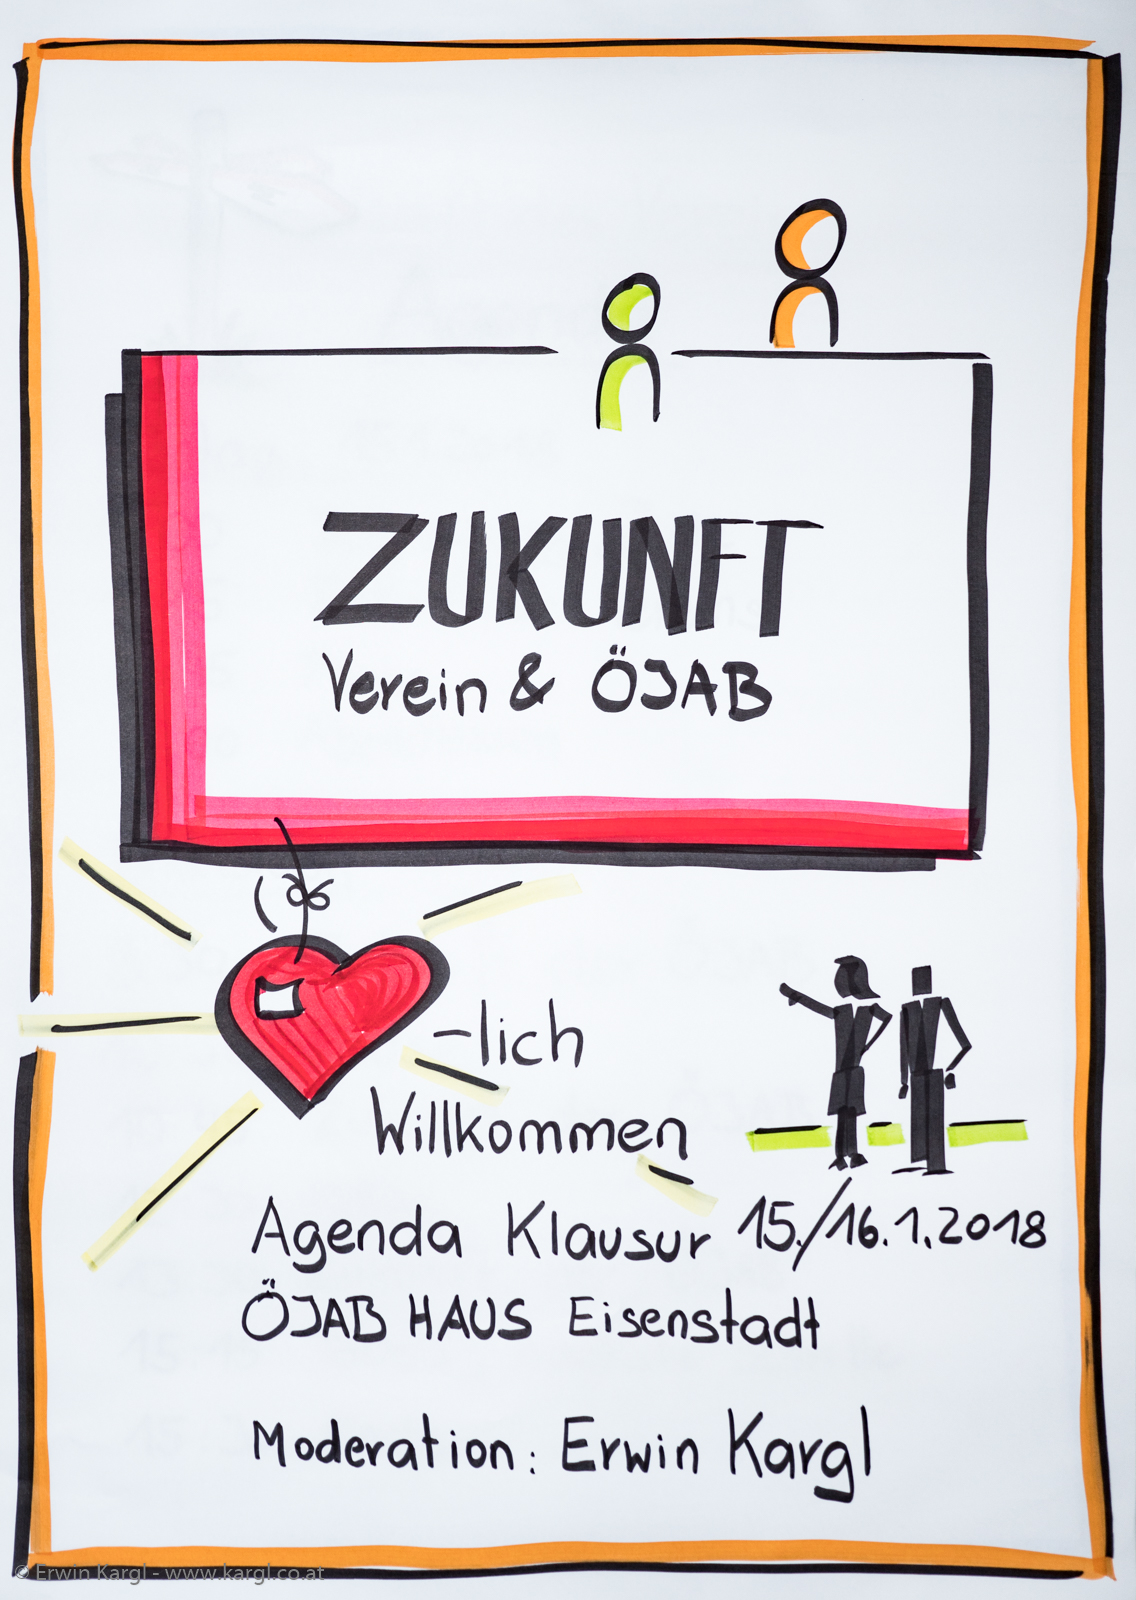 ZUKUNFT
Verein & ÖJAB
-lich
Willkommen
Agenda Klausur 15./16.1.2018
ÖJAB HAUS Eisenstadt
Moderation: Erwin Kargl
© Erwin Kargl - www.kargl.co.at